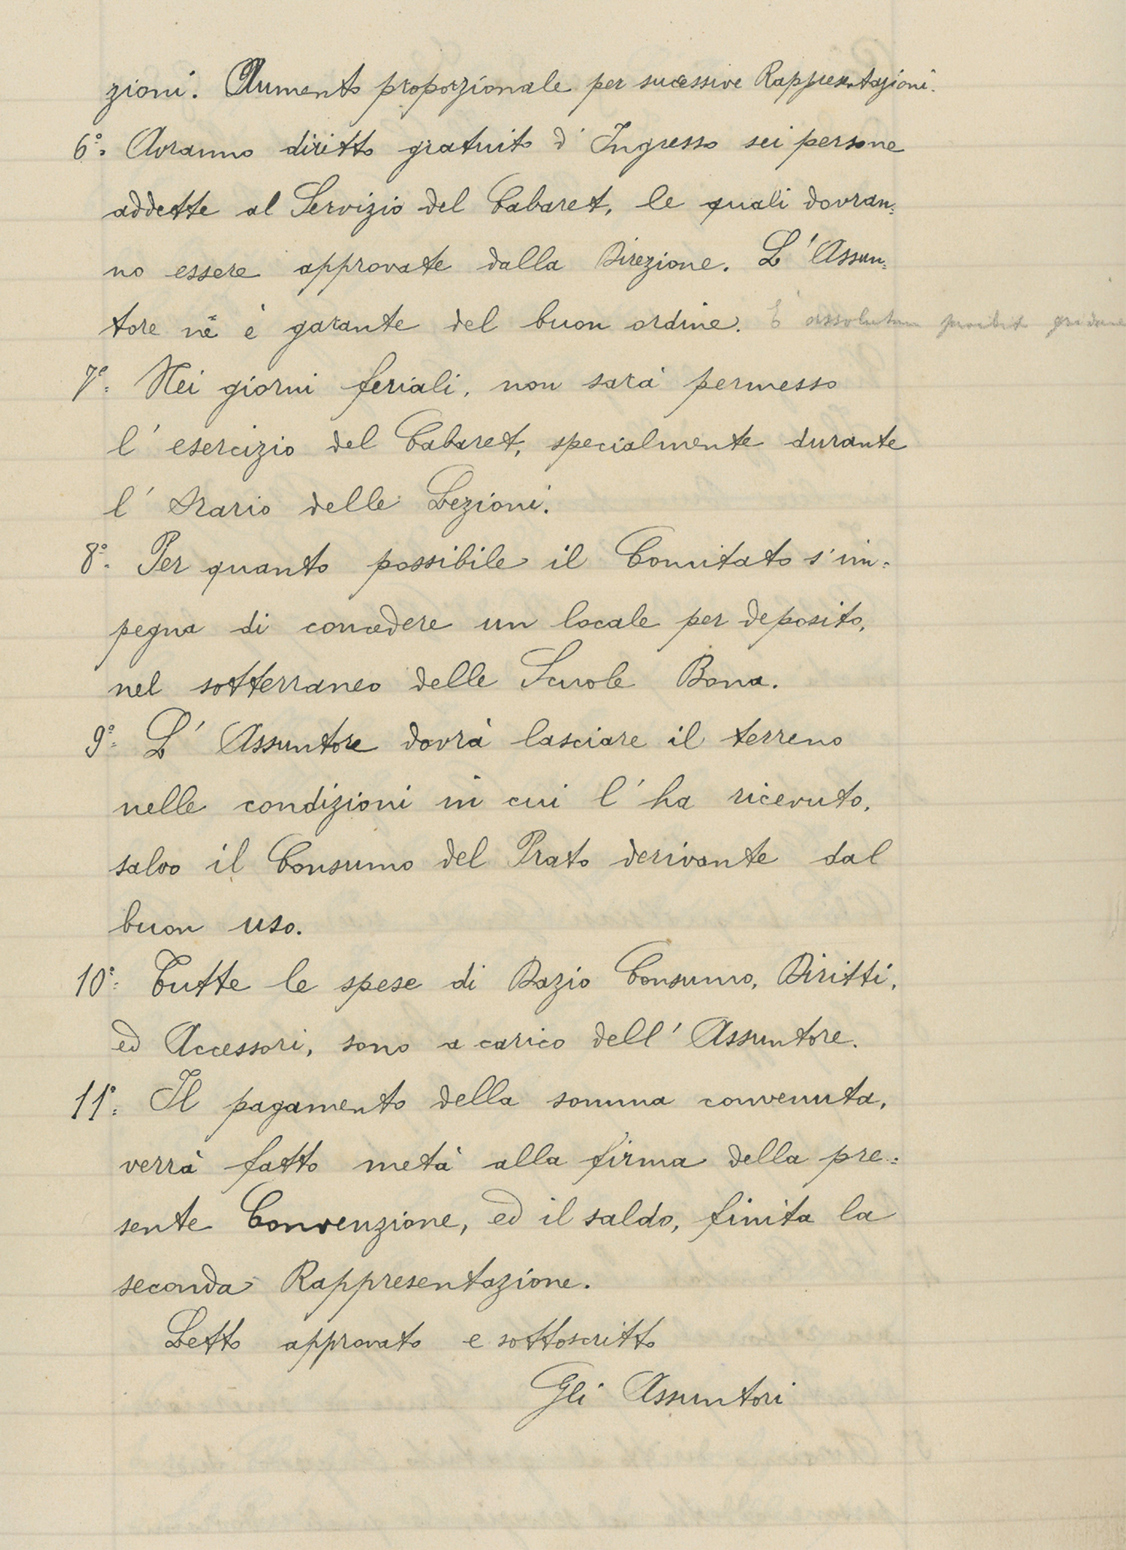 zioni. Aumento proporzionale per sucessive Rappresentazioni.
6°: Avranno diritto gratuito d'Ingresso sei persone
addette al Servizio del Cabaret, le quali dovran=
no essere approvate dalla Direzione. L'Assun=
tore nè è garante del buon ordine. È assolutam proibito gridare
7°: Nei giorni feriali, non sarà permesso
l'esercizio del Cabaret, specialmente durante
l'Orario delle Lezioni.
8°: Per quanto possibile il Comitato s'im=
pegna di concedere un locale per deposito,
nel sotterraneo delle Scuole Bona.
9°: L'Assuntore dovrà lasciare il terreno
nelle condizioni in cui l'ha ricevuto,
salvo il Consumo del Prato derivante dal
buon uso.
10°: Tutte le spese di Dazio Consumo, Diritti,
ed Accessori, sono a carico dell'Assuntore.
11°: Il pagamento della somma convenuta,
verrà fatto metà alla firma della pre=
sente Convenzione, ed il saldo, finita la
seconda Rappresentazione.
Letto approvato e sottoscritto
Gli Assuntori